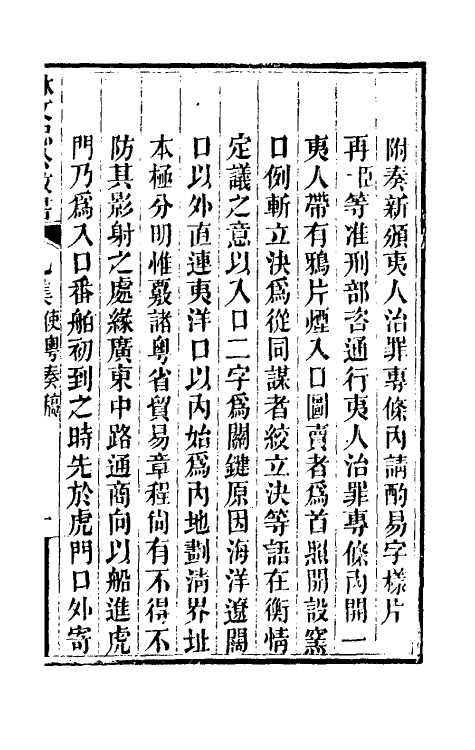 附奏新頒夷人治罪專條內請酌易字樣片
再臣等准刑部咨通行夷人治罪專條內開一
夷人帶有鴉片煙入口圖賣者爲首照開設窰
口例斬立決爲從同謀者絞立決等語在衡情
定議之意以入口二字爲關鍵原因海洋遼闊
口以外直連夷洋口以內始爲內地劃淸界址
本極分明惟覈諸粵省貿易章程尙有不得不
防其影射之處緣廣東中路通商向以船進虎
門乃爲入口番舶初到之時先於虎門口外寄
集 使粵奏稿